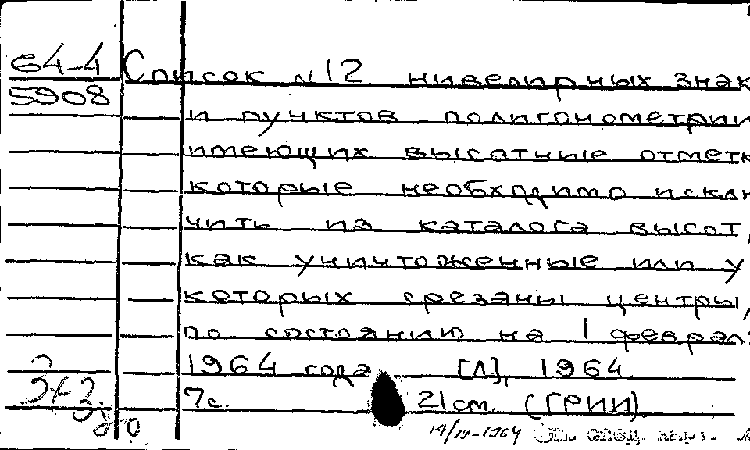 64-4 Список №12 нивелирных знак
5908 и пунктов полигонометрии
имеющих высотные отметк
которые необходимо исклю
чить из каталога высот,
как уничтоженные или у
которых срезаны центры,
по состоянию на 1 феврал
1964 года [Л], 1964.
7с. 21 см. (ГРИИ).
14/IV-1964